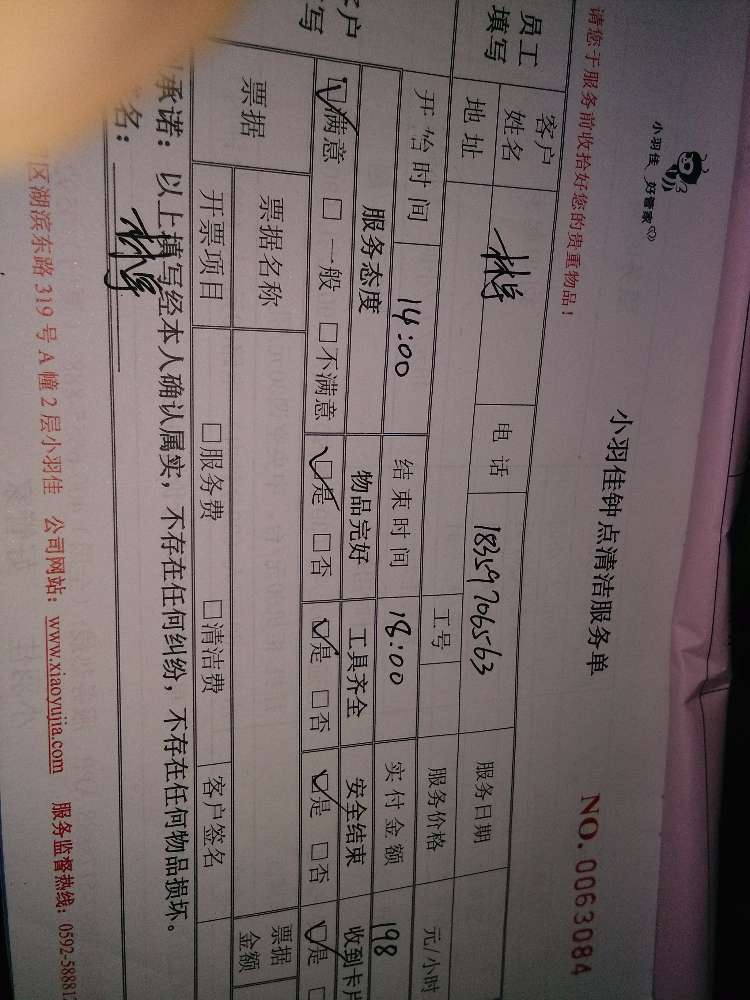 小羽佳 好管家
小羽佳钟点清洁服务单
NO. 0063084
请您于服务前收拾好您的贵重物品！
员工填写
客户姓名
电话 18359706563
服务日期
地址
工号
服务价格
元/小时
开始时间 14:00 结束时间 18:00 实付金额 198
服务态度 物品完好 工具齐全 安全结束 收到卡片
☑满意 □一般 □不满意 ☑是 □否 ☑是 □否 ☑是 □否 ☑是
票据 票据名称 票据金额
开票项目 □服务费 □清洁费 客户签名
承诺：以上填写经本人确认属实，不存在任何纠纷，不存在任何物品损坏。
名：
区湖滨东路319号A幢2层小羽佳 公司网站：www.xiaoyujia.com 服务监督热线：0592-58881